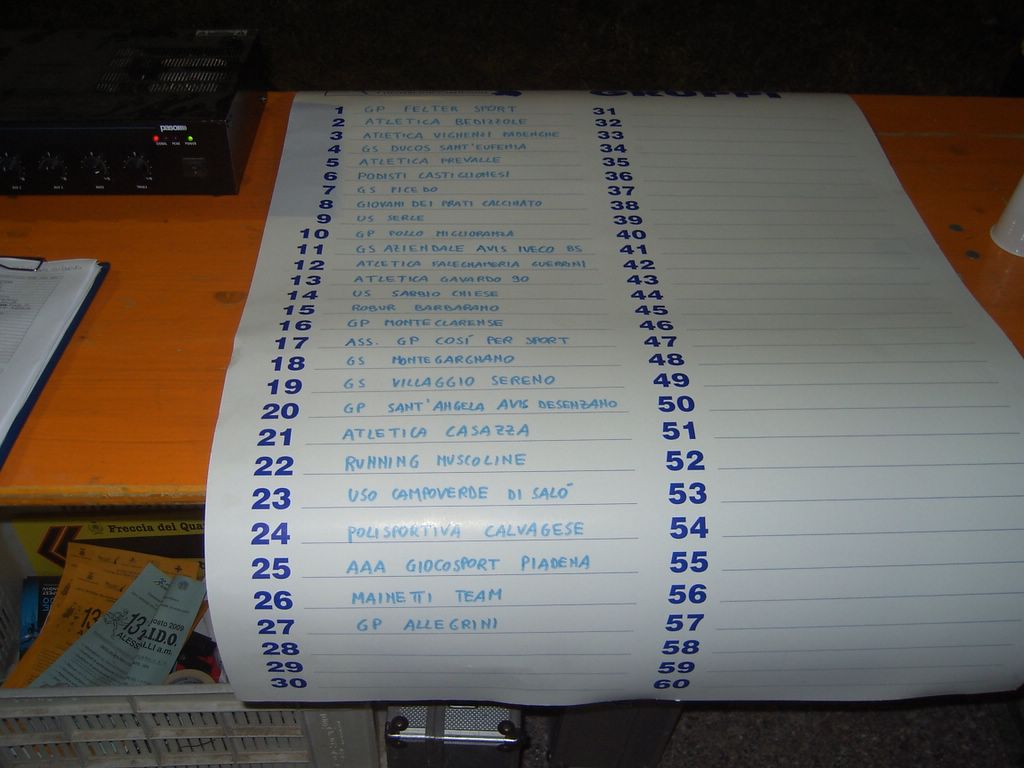 GRUPPI
1 GP FELTER SPORT
2 ATLETICA BEDIZZOLE
3 ATLETICA VIGHENZI PADENGHE
4 GS DUCOS SANT'EUFEMIA
5 ATLETICA PREVALLE
6 PODISTI CASTIGLIONESI
7 GS PICEDO
8 GIOVANI DEI PRATI CALCINATO
9 US SERLE
10 GP POLLO MIGLIORANZA
11 GS AZIENDALE AVIS IVECO BS
12 ATLETICA FALEGNAMERIA GUERRINI
13 ATLETICA GAVARDO 90
14 US SABBIO CHIESE
15 ROBUR BARBARANO
16 GP MONTECLARENSE
17 ASS. GP COSÍ PER SPORT
18 GS MONTEGARGNANO
19 GS VILLAGGIO SERENO
20 GP SANT'ANGELA AVIS DESENZANO
21 ATLETICA CASAZZA
22 RUNNING MUSCOLINE
23 USO CAMPOVERDE DI SALÓ
24 POLISPORTIVA CALVAGESE
25 AAA GIOCOSPORT PIADENA
26 MAINETTI TEAM
27 GP ALLEGRINI
28
29
30
31
32
33
34
35
36
37
38
39
40
41
42
43
44
45
46
47
48
49
50
51
52
53
54
55
56
57
58
59
60
paso
Freccia del Qua
13
osto 2009
13
I.D.O.
ALLI a.m.